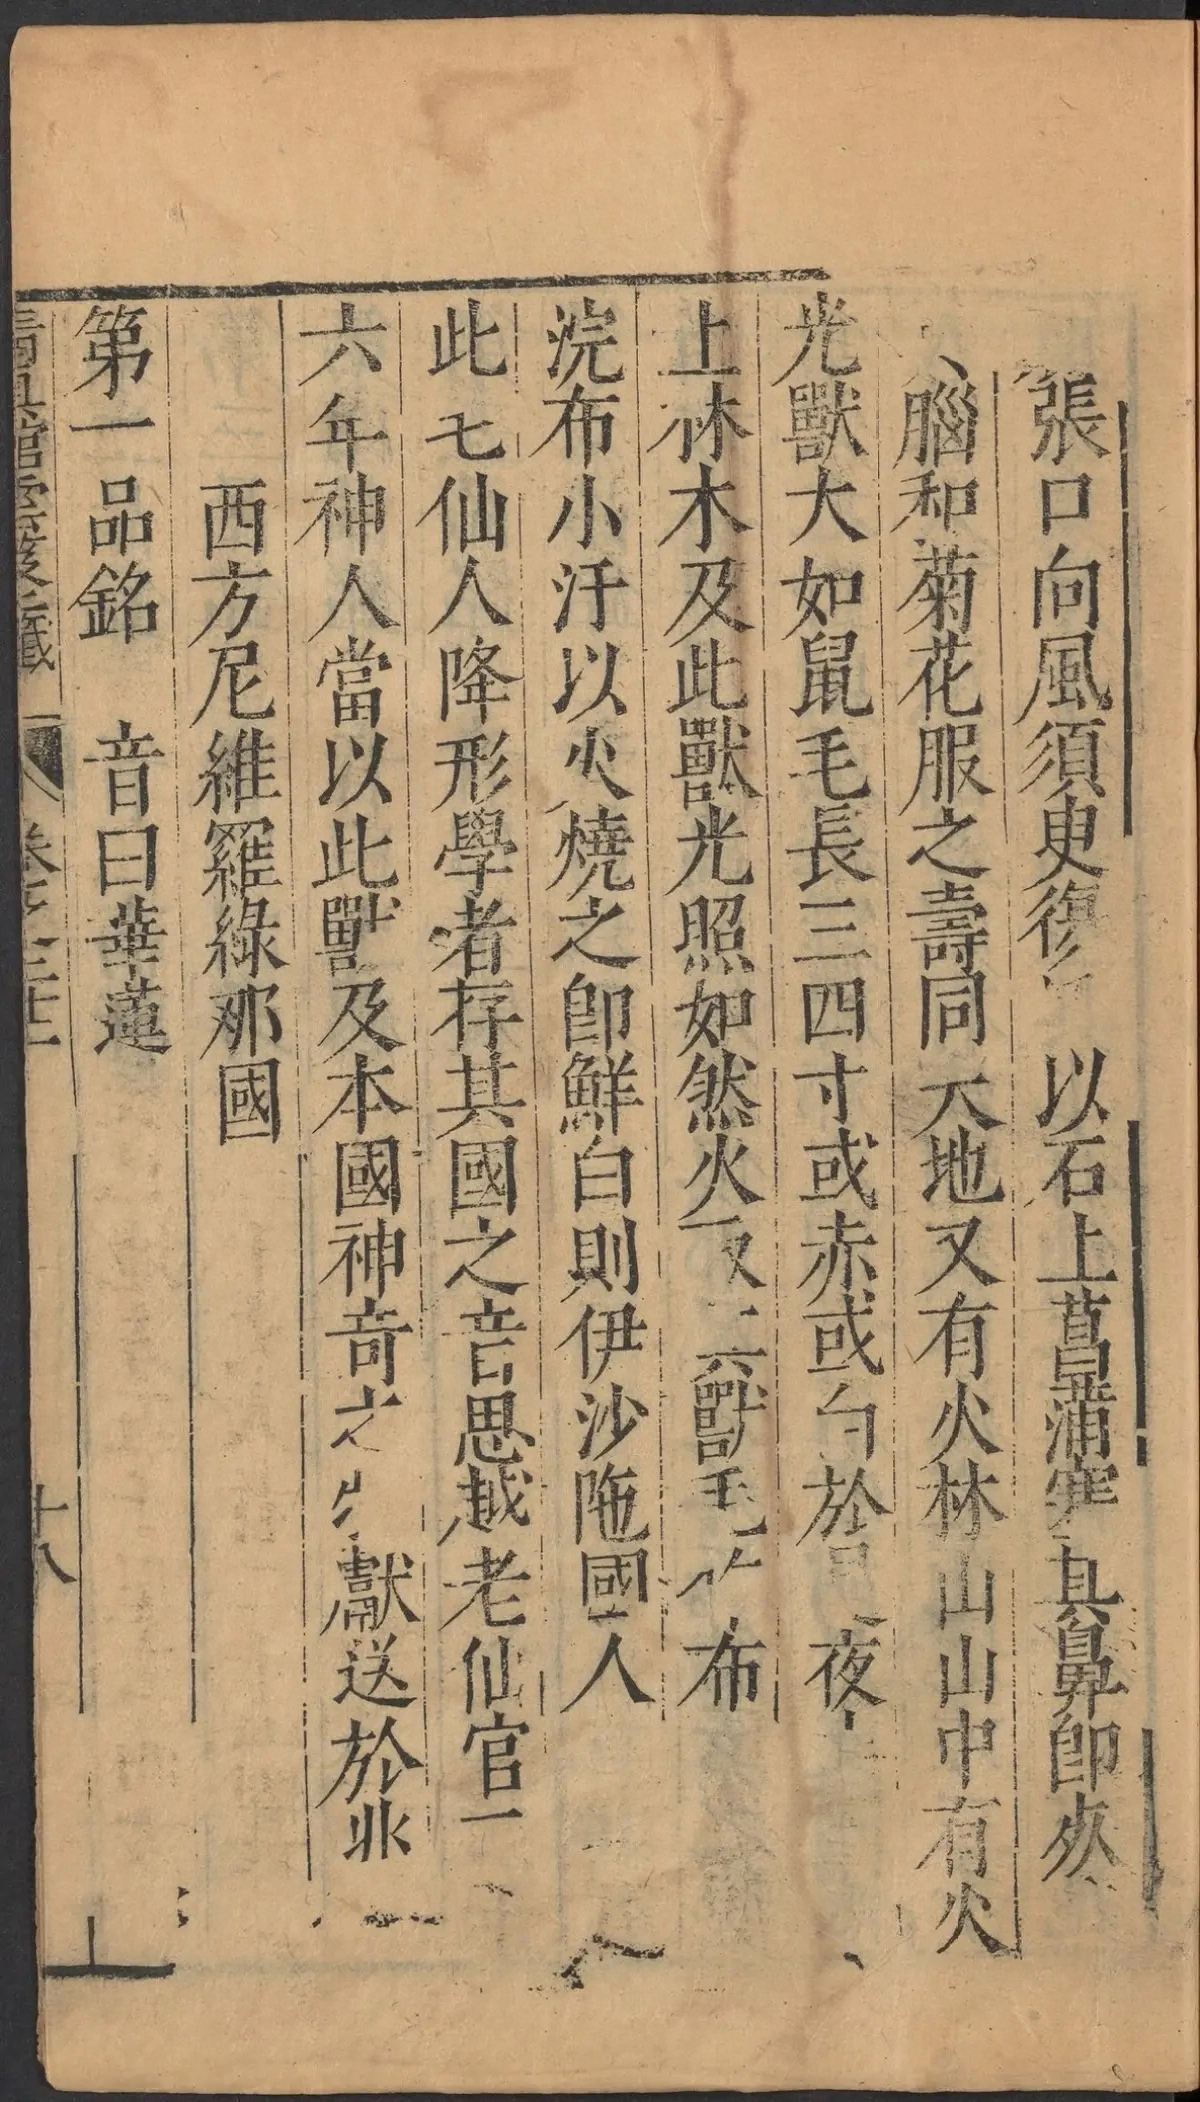 張口向風須臾復 以石上菖蒲塞其鼻即死
腦和菊花服之壽同天地又有火林山山中有火
光獸大如鼠毛長三四寸或赤或白於 夜
上林木及此獸光照如然火 獸毛 布
浣布小汙以火燒之即鮮白則伊沙陁國人
此七仙人降形學者存其國之音思越老仙官一
六年神人當以此獸及本國神奇之 獻送於非
西方尼維羅綠那國
第一品銘 音曰華蓮
十八